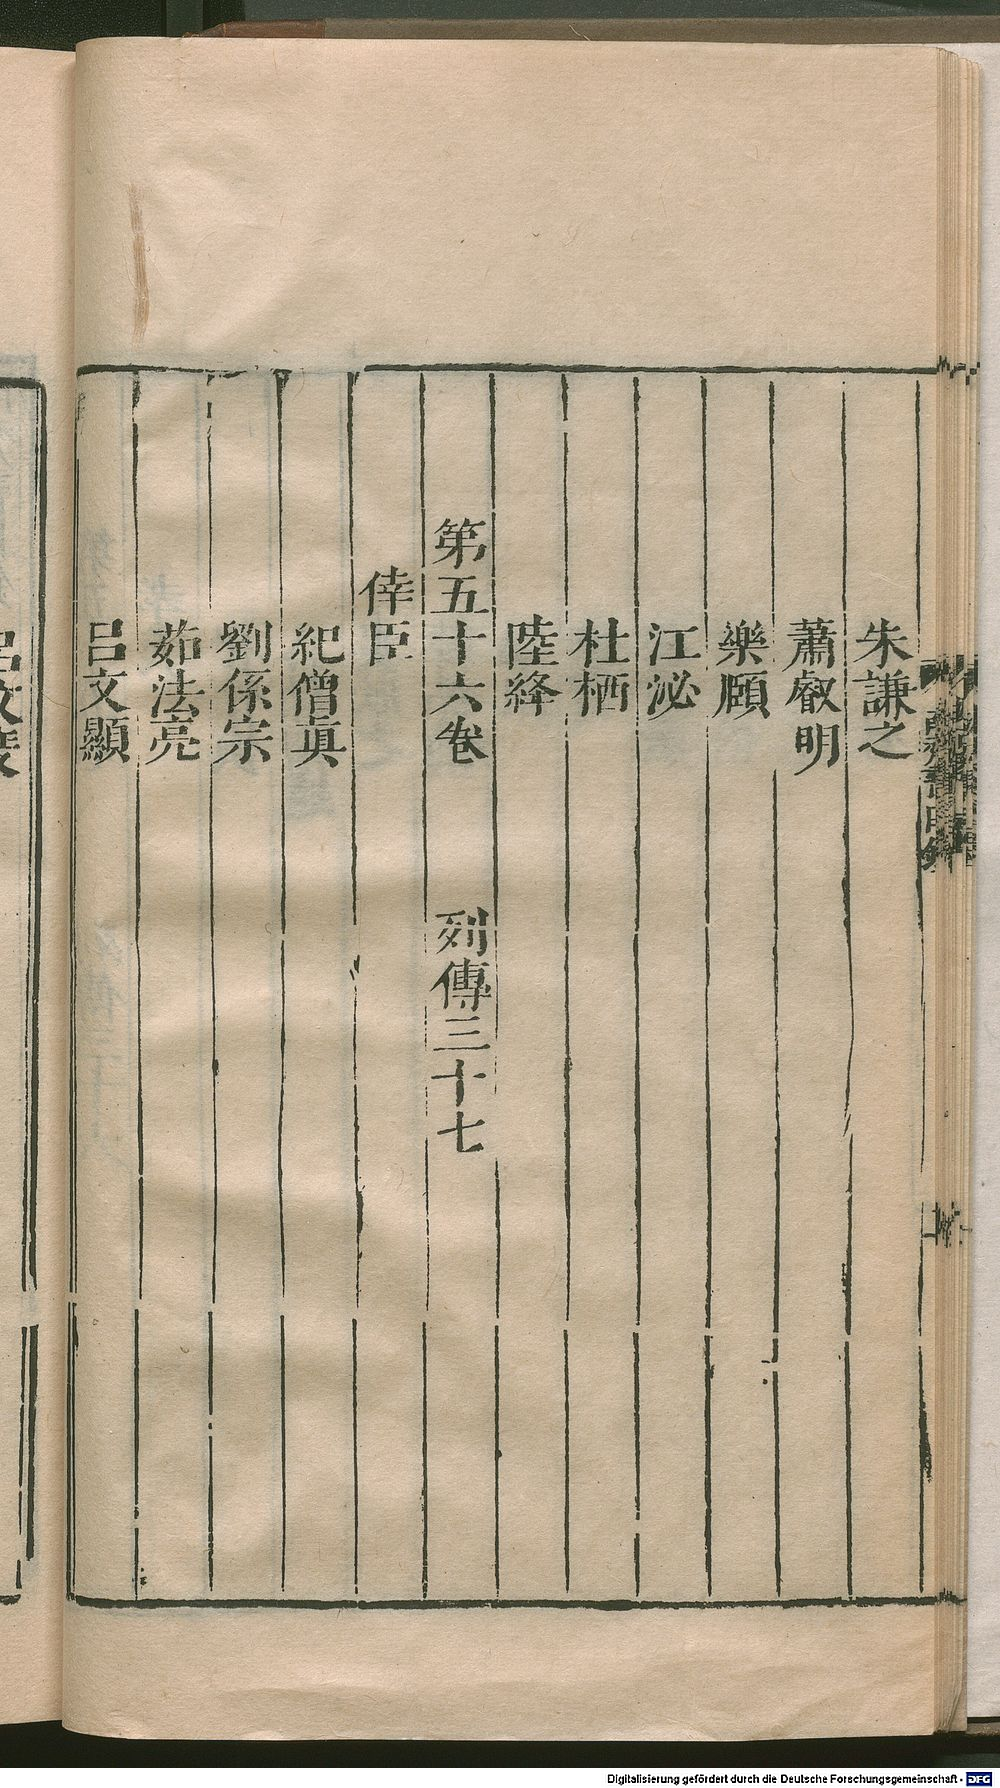 朱謙之
蕭叡明
樂頤
江泌
杜栖
陸絳
第五十六卷 列傳三十七
倖臣
紀僧眞
劉係宗
茹法亮
呂文顯
Digitalisierung gefördert durch die Deutsche Forschungsgemeinschaft - DFG